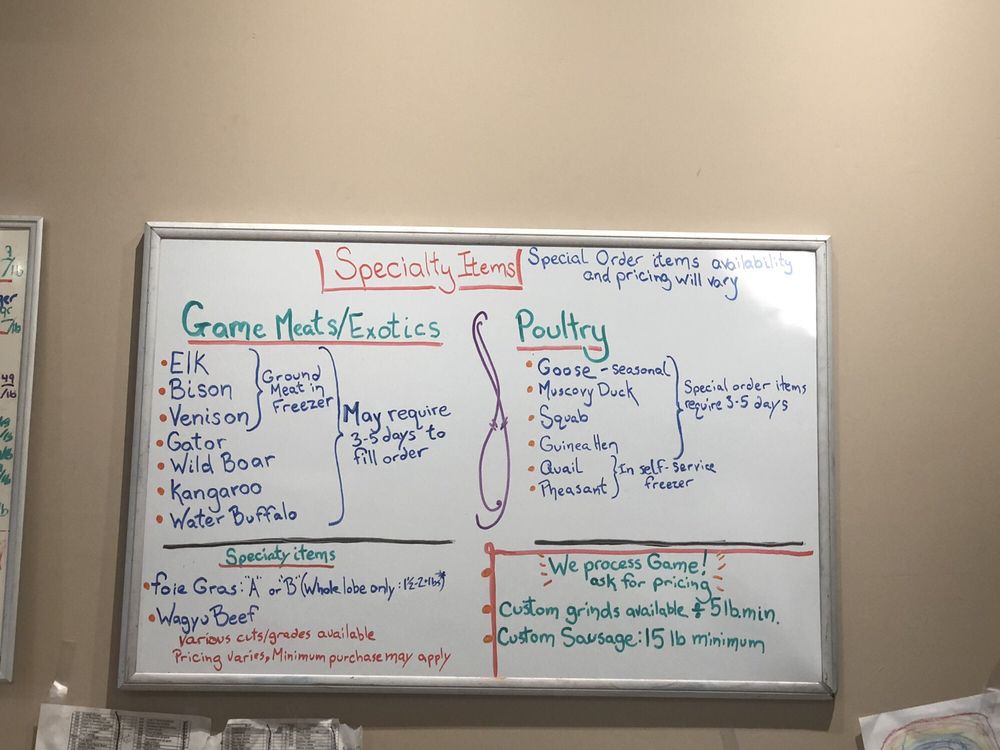 Specialty Items
Special Order items availability
and pricing will vary
Game Meats/Exotics
• Elk
• Bison
• Venison
• Gator
• Wild Boar
• Kangaroo
• Water Buffalo
Ground
Meat in
Freezer
May require
3-5 days to
fill order
Poultry
• Goose - seasonal
• Muscovy Duck
• Squab
• Guinea Hen
• Quail
• Pheasant
Special order items
require 3-5 days
In self-service
freezer
Speciaty items
• foie Gras: "A" or "B" (Whole lobe only: 1½-2+lbs)*
• Wagyu Beef
Various cuts/grades available
Pricing varies, Minimum purchase may apply
We process Game!
ask for pricing
• Custom grinds available 5 lb. min.
• Custom Sausage: 15 lb minimum